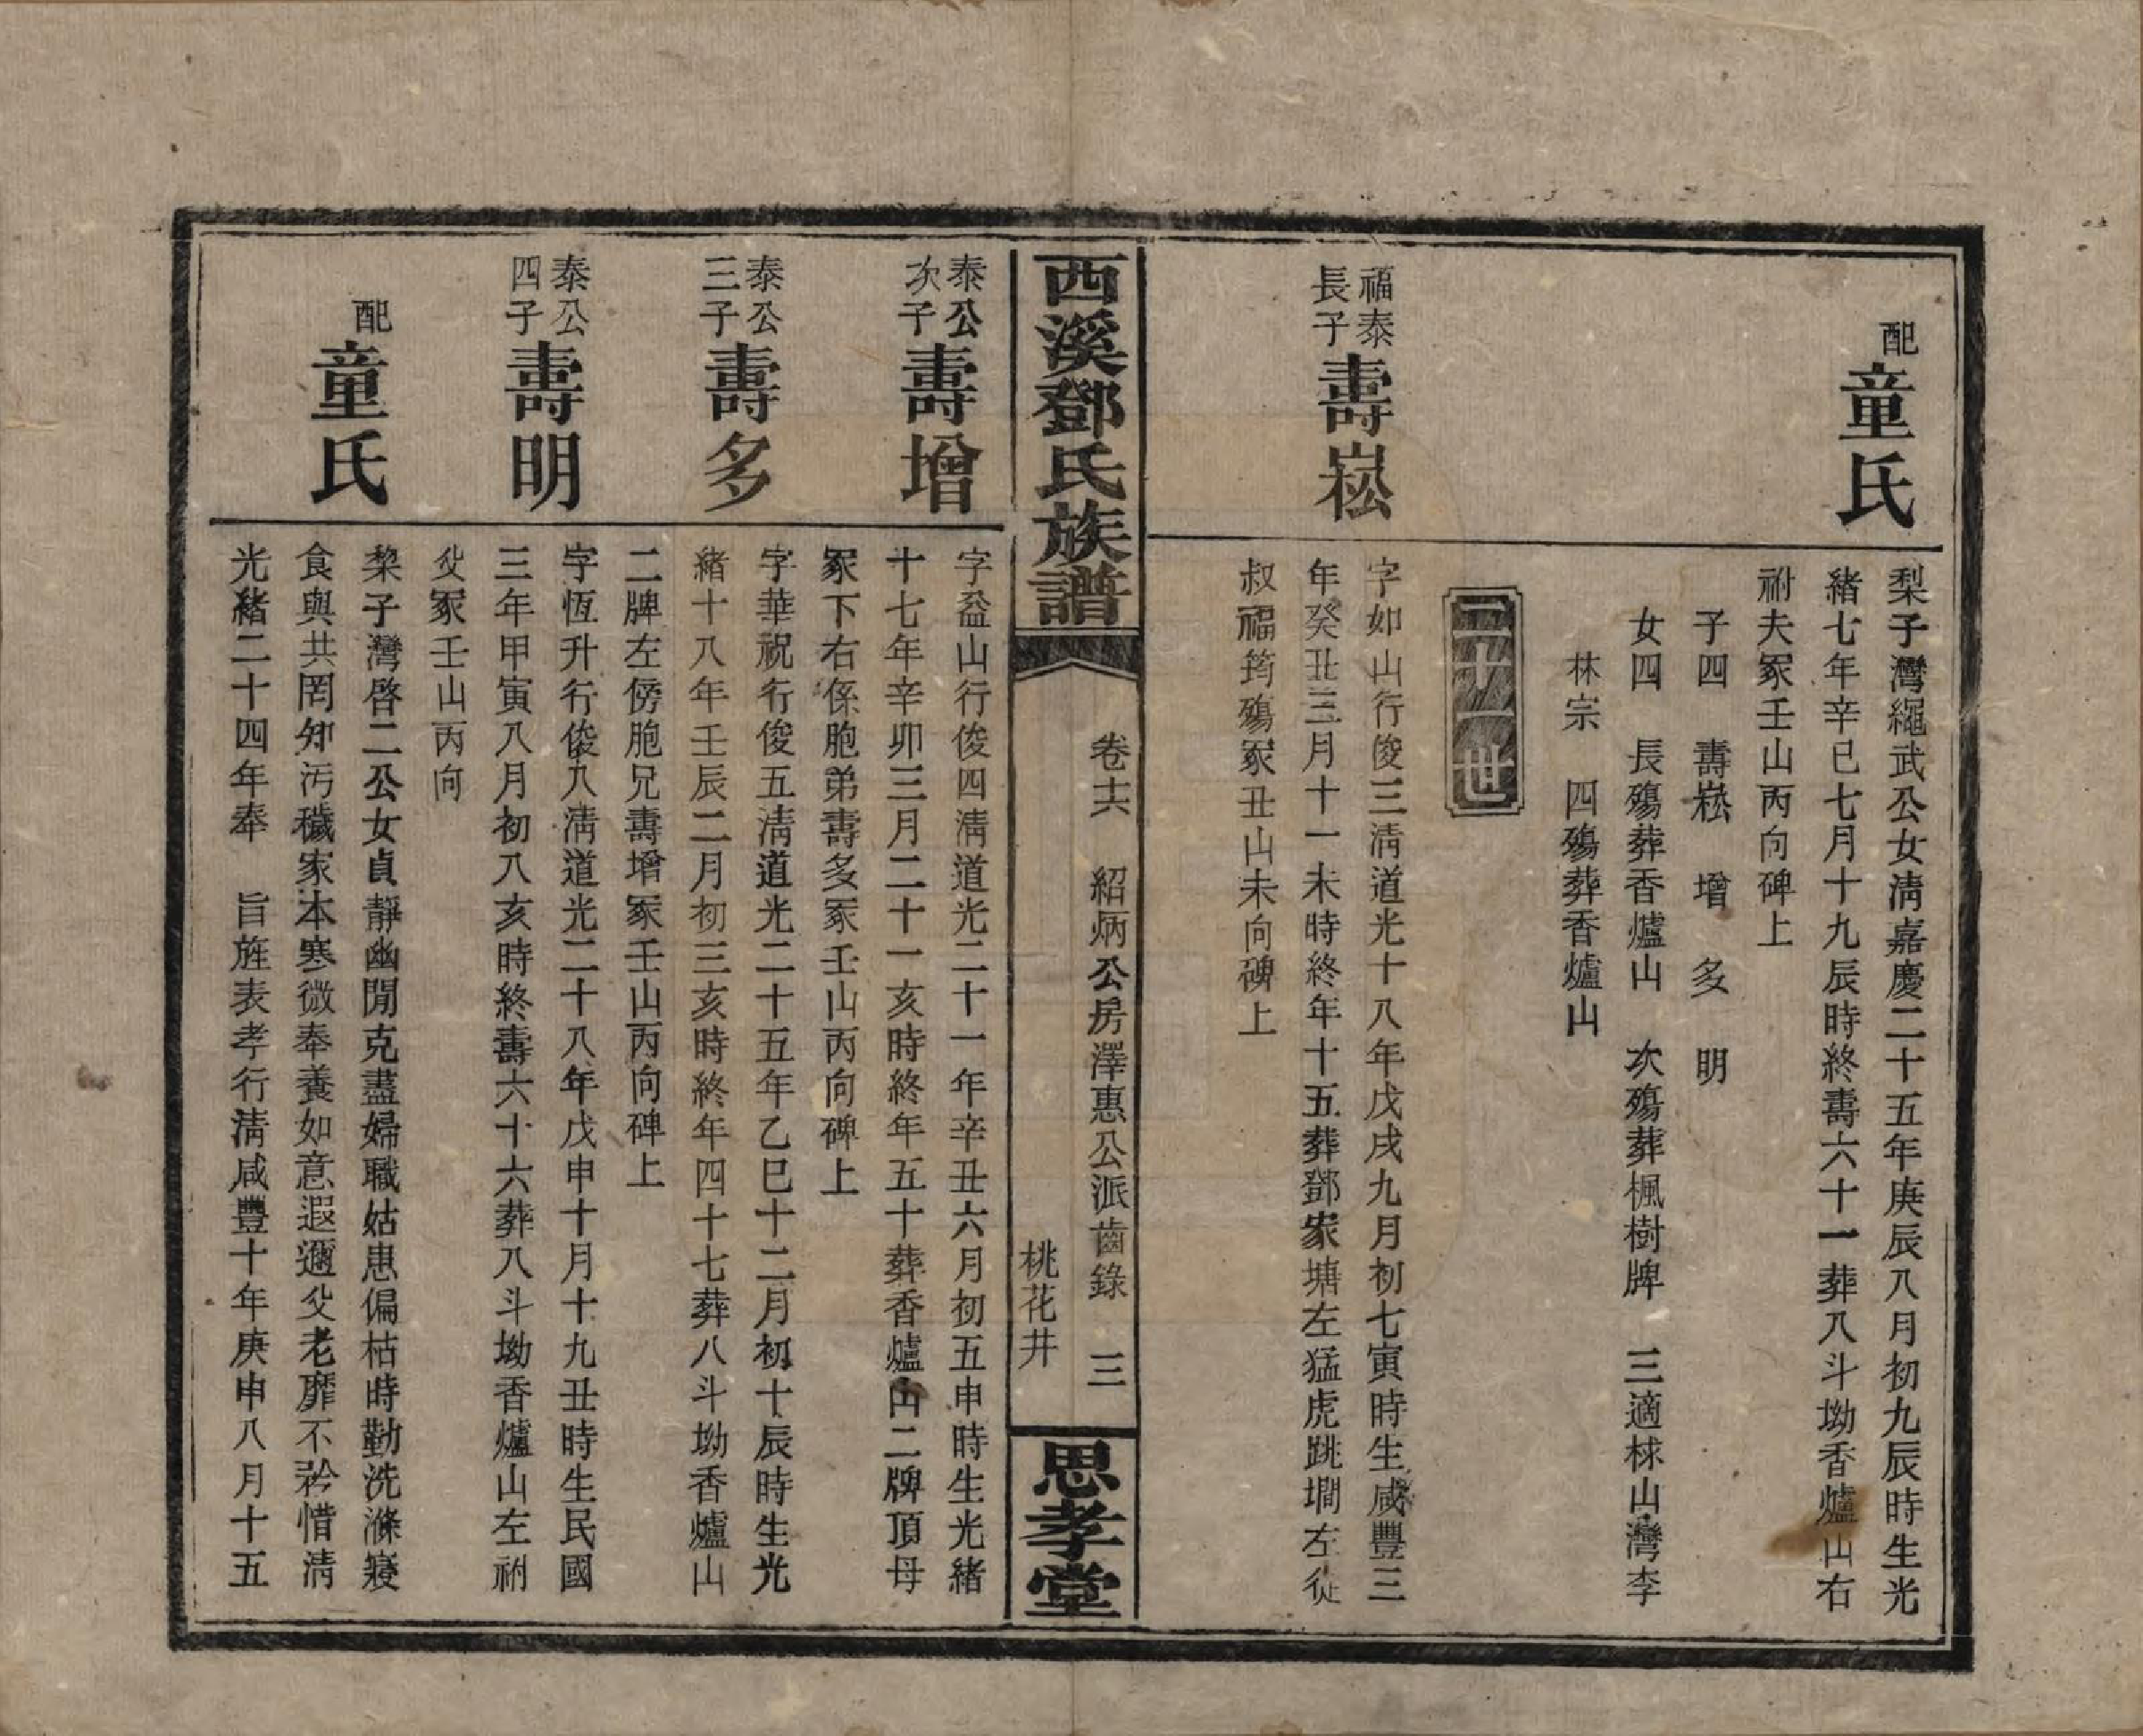 配
童氏
梨子灣繩武公女淸嘉慶二十五年庚辰八月初九辰時生光
緖七年辛巳七月十九辰時終壽六十一葬八斗坳香爐山右
祔夫冢壬山丙向碑上
子四　壽崧　增　多　明
女四　長殤葬香爐山　次殤葬楓樹牌　三適梂山灣李
林宗　四殤葬香爐山
二十一世
福泰
長子
壽崧
字如山行俊三淸道光十八年戊戌九月初七寅時生咸豐三
年癸丑三月十一未時終年十五葬鄧家塘左猛虎跳墹左從
叔福筠殤冢丑山未向碑上
西溪鄧氏族譜
卷十六　紹炳公房澤惠公派齒錄　三
桃花井
思孝堂
泰公
次子
壽增
字益山行俊四淸道光二十一年辛丑六月初五申時生光緖
十七年辛卯三月二十一亥時終年五十葬香爐山二牌頂母
冢下右係胞弟壽多冢壬山丙向碑上
泰公
三子
壽多
字華祝行俊五淸道光二十五年乙巳十二月初十辰時生光
緖十八年壬辰二月初三亥時終年四十七葬八斗坳香爐山
二牌左傍胞兄壽增冢壬山丙向碑上
泰公
四子
壽明
字恆升行俊八淸道光二十八年戊申十月十九丑時生民國
三年甲寅八月初八亥時終壽六十六葬八斗坳香爐山左祔
父冢壬山丙向
配
童氏
棃子灣啓二公女貞靜幽閒克盡婦職姑患偏枯時勤洗滌寢
食與共罔知汚穢家本寒微奉養如意遐邇父老靡不矜惜淸
光緖二十四年奉　旨旌表孝行淸咸豐十年庚申八月十五